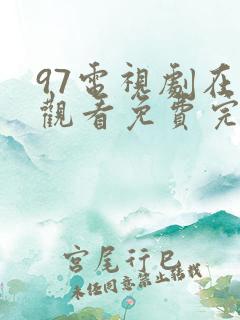 97電視劇在
觀看免費完
宮尾行巳
未经同意禁止转载